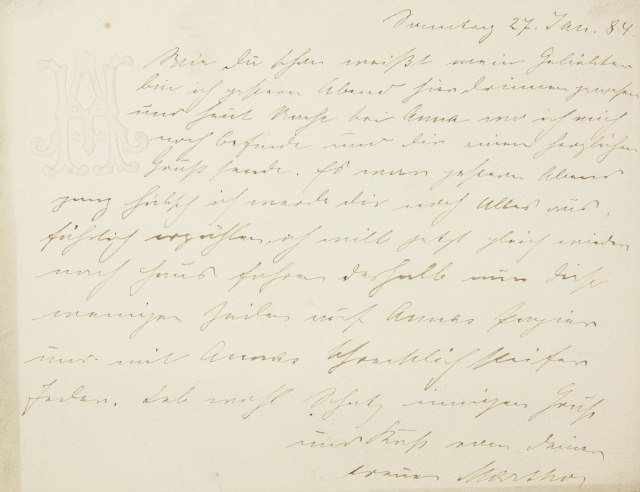 Sonntag 27. Jan. 84.
Wie Du schon weißt mein Geliebter
bin ich gestern Abend hier drinnen gewesen
und heut Nacht bei Anna wo ich mich
noch befinde und dir einen herzlichen
Gruß sende. Es war gestern Abend
ganz hübsch ich werde dir noch Alles aus-
führlich erzählen, ich will jetzt gleich wieder
nach Haus fahren deshalb nur diese
wenigen Zeilen auf Annas Papier
und mit Annas schrecklich steifer
Feder. Leb wohl Schatz innigen Gruß
und Kuß von deiner
treuen Martha